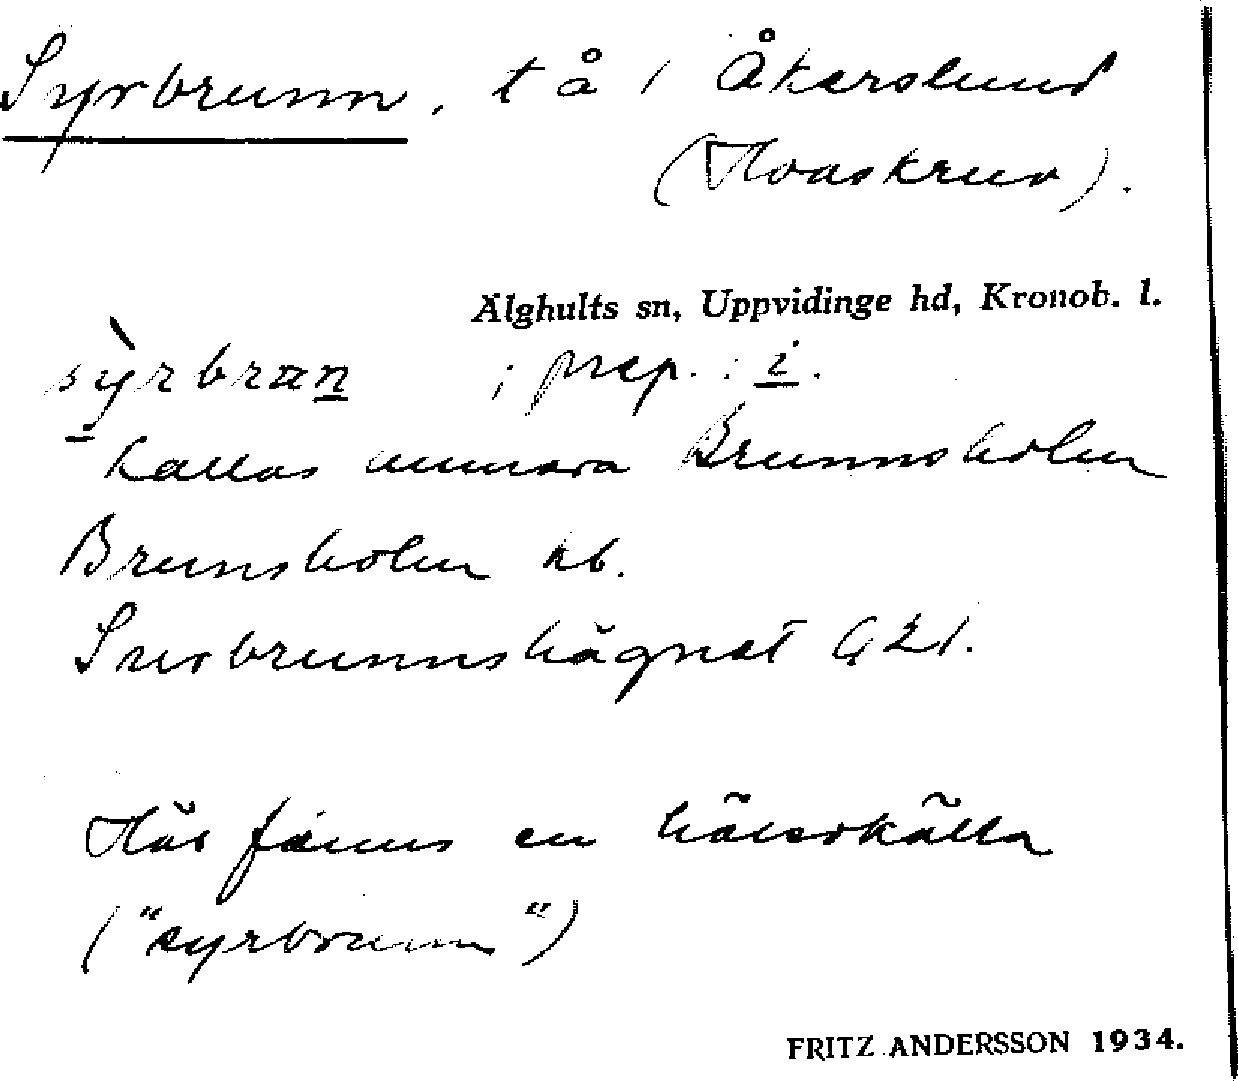 Syrbrunn, t å i Åkerslund
(Hvaskruv).
Älghults sn, Uppvidinge hd, Kronob. l.
sỳrbran ; prep. : i.
kallas numera Brunnsholm
Brunsholm kb.
Surbrunnshägnet G21.
Här finns en hälsokälla
("syrbrunn")
FRITZ ANDERSSON 1934.